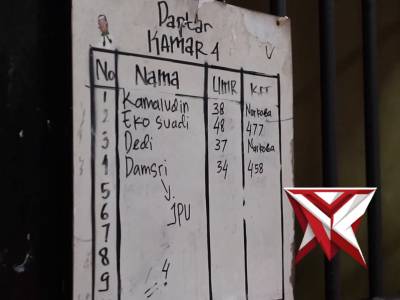 Daftar
KAMAR 4
No Nama UMR KET
1 Kamaludin 38 Narkoba
2 Eko Suadi 48 477
3 Dedi 37 Narkoba
4 Damsri 34 458
5
6 JPU
7
8
9 4